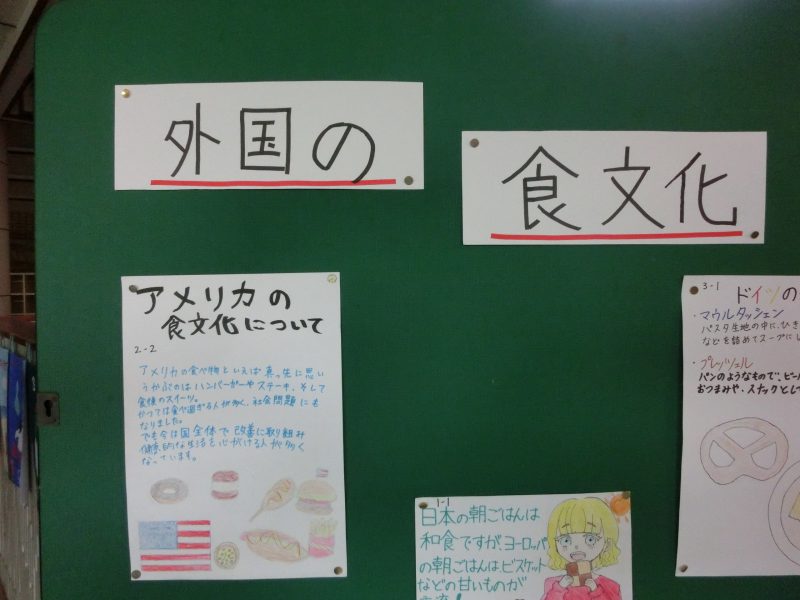 外国の
食文化
アメリカの
食文化について
2-2
アメリカの食べ物といえば真っ先に思い
うかぶのはハンバーガーやステーキ、そして
食後のスイーツ。
かつては食べ過ぎる人が多く、社会問題にも
なりました。
でも今は国全体で改善に取り組み
健康的な生活を心がける人が多く
なっています。
1-1
日本の朝ごはんは
和食ですが、ヨーロッパ
の朝ごはんは、ビスケット
などの甘いものが
3-1
ドイツの
・マウルタッシェン
パスタ生地の中に、ひき
などを詰めてスープにし
・プレッツェル
パンのようなもので、ビール
おつまみや、スナックとし